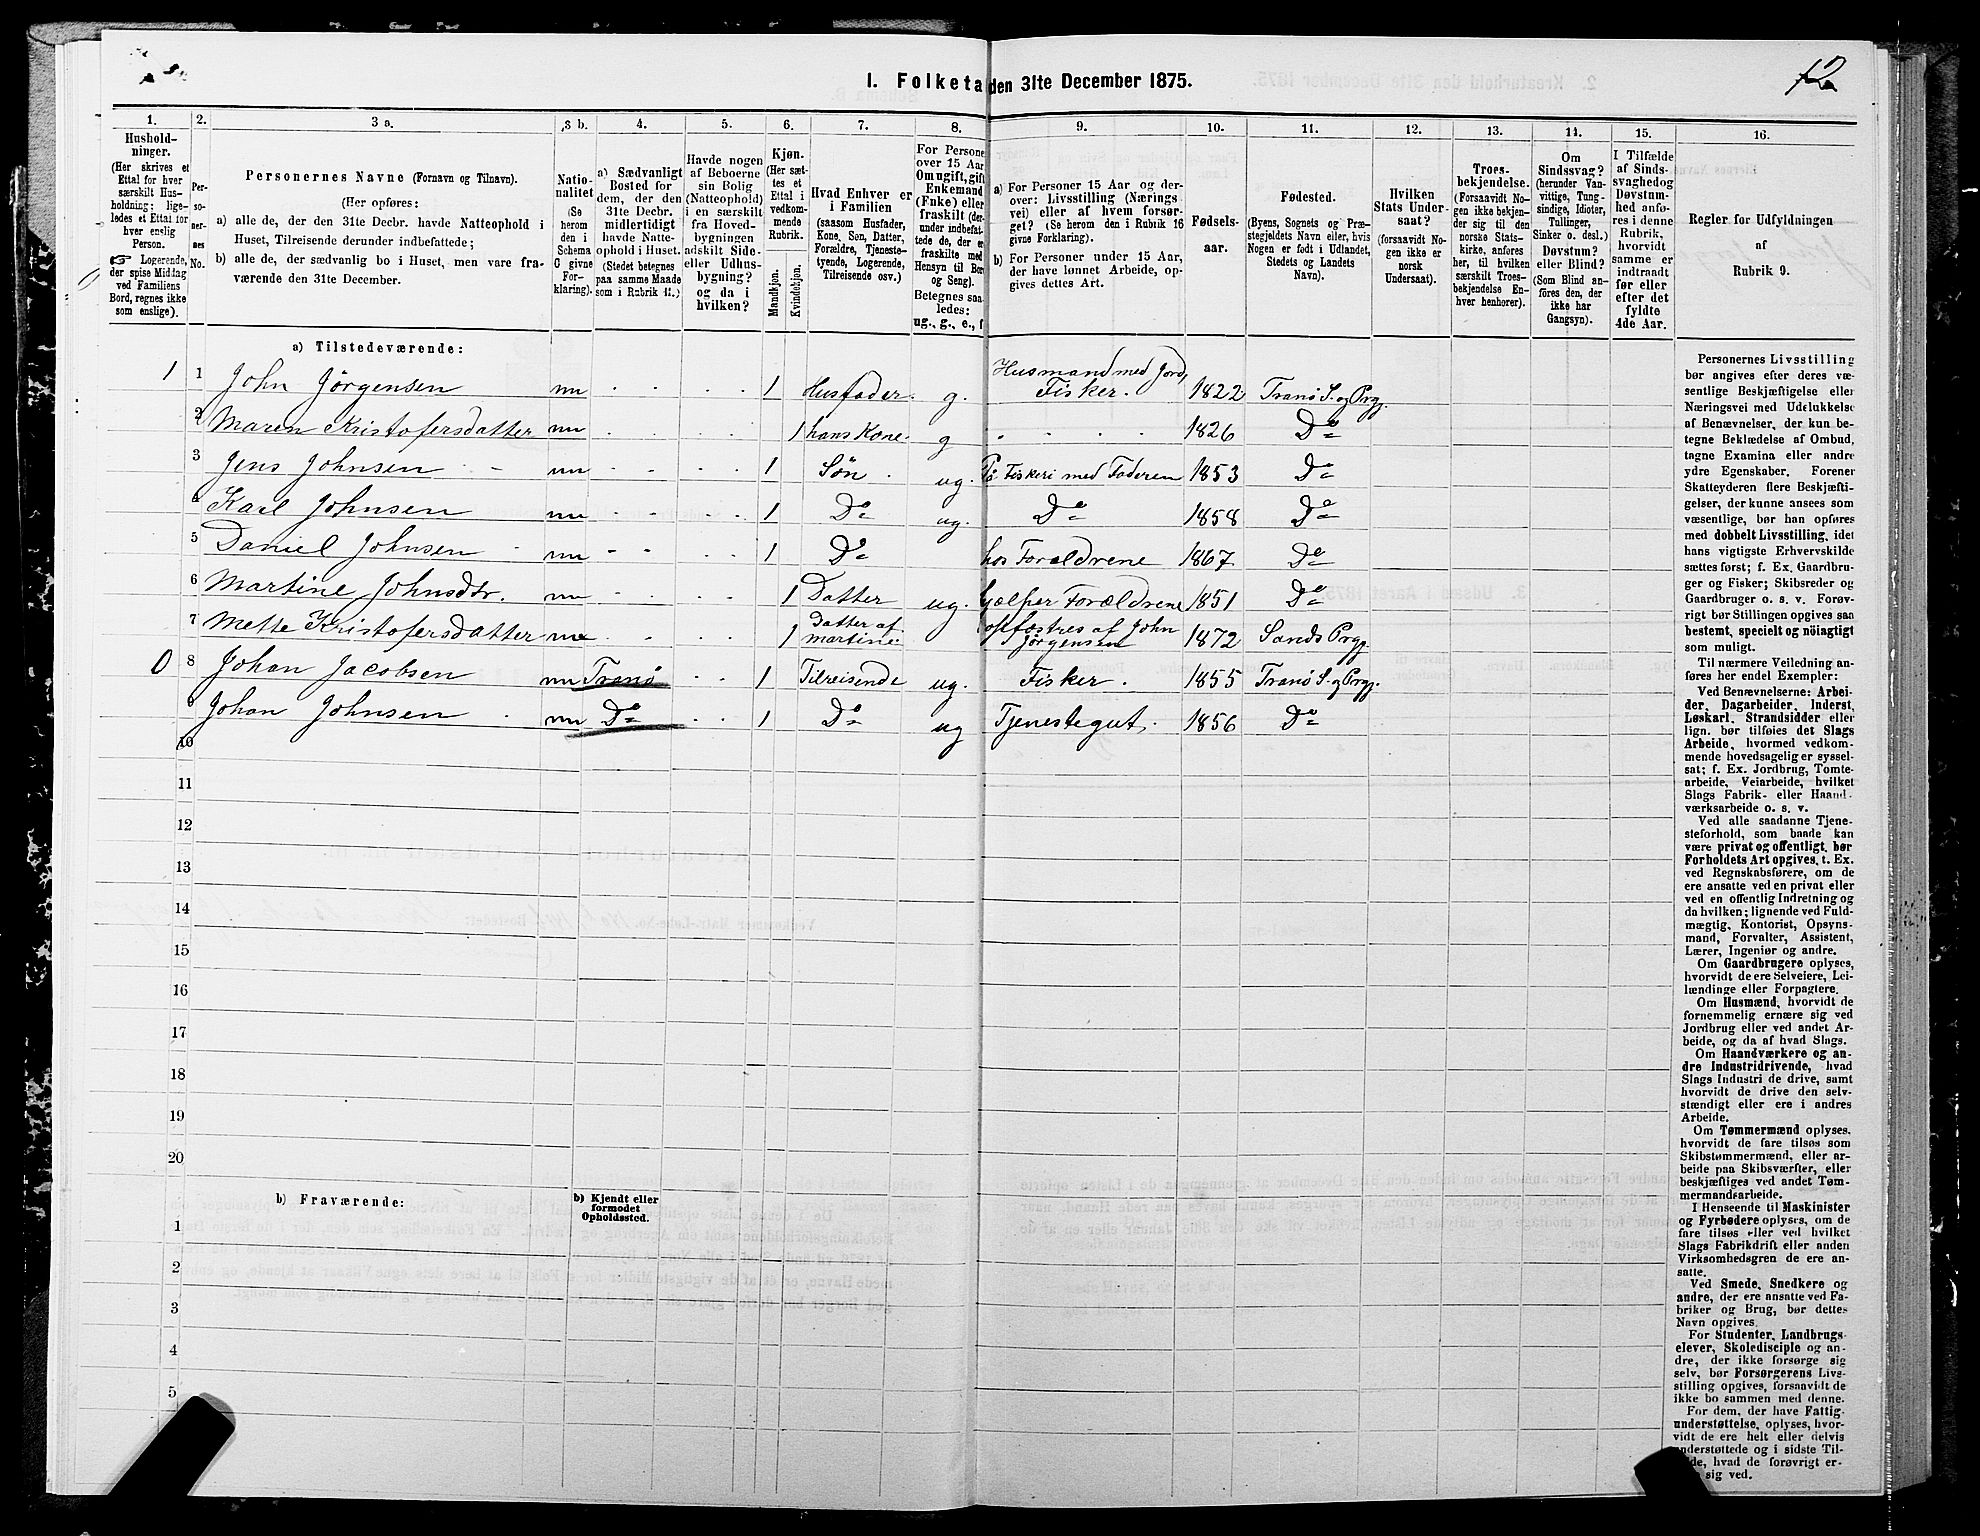 12
I. Folketa den 31te December 1875.
1.
Hushold-
ninger.
(Her skrives et
Ettal for hver
særskilt Hus-
holdning; lige-
ledes et Ettal for
hver enslig
Person.
☞ Logerende,
der spise Middag
ved Familiens
Bord, regnes ikke
som enslige).
2.
Per-
so-
ner-
nes
No.
3 a.
Personernes Navne (Fornavn og Tilnavn).
(Her opføres:
a) alle de, der den 31te Decbr. havde Natteophold i
Huset, Tilreisende derunder indbefattede;
b) alle de, der sædvanlig bo i Huset, men vare fra-
værende den 31te December.
3 b.
Natio-
nalitet
(Se
herom
den i
Schema
C givne
For-
klaring).
4.
a) Sædvanligt
Bosted for
dem, der den
31te Decbr.
midlertidigt
havde Natte-
ophold i Huset.
(Stedet betegnes
paa samme Maade
som i Rubrik 11.)
5.
Havde nogen
af Beboerne
sin Bolig
(Natteophold)
i en særskilt
fra Hoved-
bygningen
adskilt Side-
eller Udhus-
bygning?
og da i
hvilken?
6.
Kjøn.
(Her sæt-
tes et
Ettal i
vedkom-
mende
Rubrik.
Mandkjøn.
Kvindekjøn.
7.
Hvad Enhver er
i Familien
(saasom Husfader,
Kone, Søn, Datter,
Forældre, Tjeneste-
tyende, Logerende,
Tilreisende osv.)
8.
For Persone
over 15 Aar
Om ugift, gift
Enkemand
(Enke) eller
fraskilt (der-
under indbefat-
tede de, der er
fraskilte med
Hensyn til Bor
og Seng).
Betegnes saa
ledes:
ug., g., e., f
9.
a) For Personer 15 Aar og der-
over: Livsstilling (Nærings
vei) eller af hvem forsør-
get? (Se herom den i Rubrik 16
givne Forklaring).
b) For Personer under 15 Aar,
der have lønnet Arbeide, op-
gives dettes Art.
10.
Fødsels-
aar.
11.
Fødested.
(Byens, Sognets og Præ-
stegjeldets Navn eller, hvis
Nogen er født i Udlandet,
Stedets og Landets
Navn).
12.
Hvilken
Stats Under-
saat?
(forsaavidt No-
gen ikke er
norsk
Undersaat).
13.
Troes-
bekjendelse.
(Forsaavidt No-
gen ikke bekjen-
der sig til den
norske Stats-
kirke, anføres
her, til hvilken
særskilt Troes-
bekjendelse En-
hver henhører).
14.
Om
Sindssvag?
(herunder Van-
vittige, Tung-
sindige, Idioter,
Tullinger,
Sinker o. desl.)
Døvstum?
eller Blind?
(Som Blind an-
føres den, der
ikke har
Gangsyn).
15.
I Tilfælde
af Sinds-
svaghedog
Døvstum-
hed anfø-
res i denne
Rubrik,
hvorvidt
samme er
indtraadt
før eller
efter det
fyldte
4de Aar.
16.
Regler for Udfyldningen
af
Rubrik 9.
a) Tilstedeværende:
1 1 John Jörgensen nn 1 Husfader. g. Husmand med Jord, Fisker. 1822 Tranö S. og Prgj.
2 Maren Kristofersdatter nn 1 hans Kone. g 1826 Do
3 Jens Johnsen nn 1 Sön ug. På Fiskeri med Faderen 1853 Do
4 Karl Johnsen nn 1 Do ug. Do 1858 Do
5 Daniel Johnsen nn 1 Do hos Foraldrene 1867 Do
6 Martine Johnsdtr. nn 1 Datter ug. hjælper Forældrene 1851 Do
7 Mette Kristofersdatter nn 1 Datter af martine opfostres af John Jörgensen 1872 Sands Prgj.
0 8 Johan Jacobsen nn Tranö 1 Tilreisende ug. Fisker. 1855 Tranö S. og Prgj.
9 Johan Johnsen nn Do 1 Do ug Tjenestegut. 1856 Do
10
11
12
13
14
15
16
17
18
19
20
b) Fraværende:
b) Kjendt eller
formodet
Opholdssted.
1
2
3
4
5
Personernes Livsstilling
bør angives efter deres væ-
sentlige Beskjæftigelse eller
Næringsvei med Udelukkelse
af Benævnelser, der kun be-
tegne Beklædelse af Ombud,
tagne Examina eller andre
ydre Egenskaber. Forener
Skatteyderen flere Beskjæfti-
gelser, der kunne ansees som
væsentlige, bør han opføres
med dobbelt Livsstilling, idet
hans vigtigste Erhvervskilde
sættes først; f. Ex. Gaardbru-
ger og Fisker; Skibsreder og
Gaardbruger o. s. v. Forøv-
rigt bør Stillingen opgives saa
bestemt, specielt og nöiagtigt
som muligt.
Til nærmere Veiledning an-
føres her endel Exempler:
Ved Benævnelserne: Arbei-
der, Dagarbeider, Inderst,
Løskarl, Strandsidder eller
lign. bør tilføies det Slags
Arbeide, hvormed vedkom-
mende hovedsagelig er syssel-
sat; f. Ex. Jordbrug, Tomte-
arbeide, Veiarbeide, hvilket
Slags Fabrik- eller Haand-
værksarbeide o. s. v.
Ved alle saadanne Tjene-
steforhold, som baade kan
være privat og offentligt, bør
Forholdets Art opgives, t. Ex.
ved Regnskabsførere, om de
ere ansatte ved en privat eller
ved en offentlig Indretning og
da hvilken; lignende ved Fuld-
mægtig, Kontorist, Opsyns-
mand, Forvalter, Assistent,
Lærer, Ingeniør og andre.
Om Gaardbrugere oplyses,
hvorvidt de ere Selveiere, Lei-
lændinge eller Forpagtere.
Om Husmænd, hvorvidt de
fornemmelig ernære sig ved
Jordbrug eller ved andet Ar-
beide, og da af hvad Slags.
Om Haandværkere og an-
dre Industridrivende, hvad
Slags Industri de drive, samt
hvorvidt de drive den selv-
stændigt eller ere i andres
Arbeide.
Om Tømmermænd oplyses,
hvorvidt de fare tilsøs som
Skibstømmermænd, eller ar-
beide paa Skibsværfter, eller
beskjæftiges ved andet Tøm-
mermandsarbeide.
I Henseende til Maskinister
og Fyrbødere oplyses, om de
fare tilsøs eller ved hvilket
Slags Fabrikdrift eller anden
Virksomhedsgren de ere an-
satte.
Ved Smede, Snedkere og
andre, der ere ansatte ved Fa-
briker og Brug, bør dettes
Navn opgives.
For Studenter, Landbrugs-
elever, Skoledisciple og an-
dre, der ikke forsørge sig
selv, bør Forsørgerens Livs-
stilling opgives, forsaavidt de
ikke bo sammen med denne.
For dem, der have Fattig-
understøttelse, oplyses, hvor-
vidt de ere helt eller delvis
understøttede og i sidste Til-
de, hvad de forøvrigt er-
sig ved.